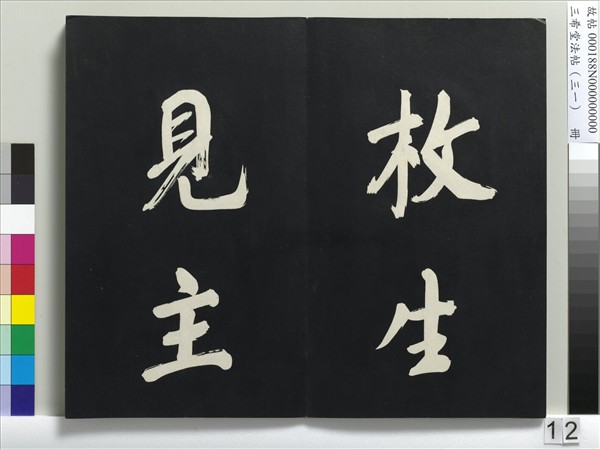 枚生
見主
故帖 000188N000000000
三希堂法帖（三一） 冊
12